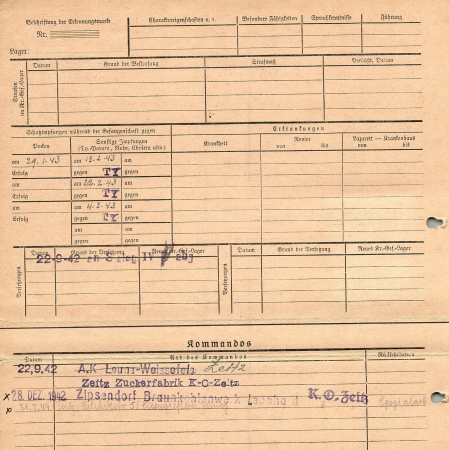 Beschriftung der Erkennungsmarke
Nr.
Lager:
Charaktereigenschaften u. s.
Besondere Fähigkeiten
Sprachkenntnisse
Führung
Strafen im Kr.-Gef.-Lager
Datum
Grund der Bestrafung
Strafmaß
Verbüßt, Datum
Schutzimpfungen während der Gefangenschaft gegen
Erkrankungen
Pocken
Sonstige Impfungen
(Ty.-Paraty., Ruhr, Cholera usw.)
Krankheit
Revier
von bis
Lazarett — Krankenhaus
von bis
am 29.1.43 am 13.2.43 am
Erfolg gegen TY gegen
am am 22.2.43 am
Erfolg gegen TY gegen
am am 4.2.43 am
Erfolg gegen TY gegen
am am
gegen gegen
Versetzungen
Datum
Grund der Versetzung
Neues Kr.-Gef.-Lager
Datum
Grund der Versetzung
Neues Kr.-Gef.-Lager
22-9-42 IV
Kommandos
Datum
Art des Kommandos
Rückkehrdatum
22,9.42 A.K Zeitz
Zeitz Zuckerfabrik K-O-Zeitz
x 28. DEZ. 1942 Zipsendorf K.O. Zeitz